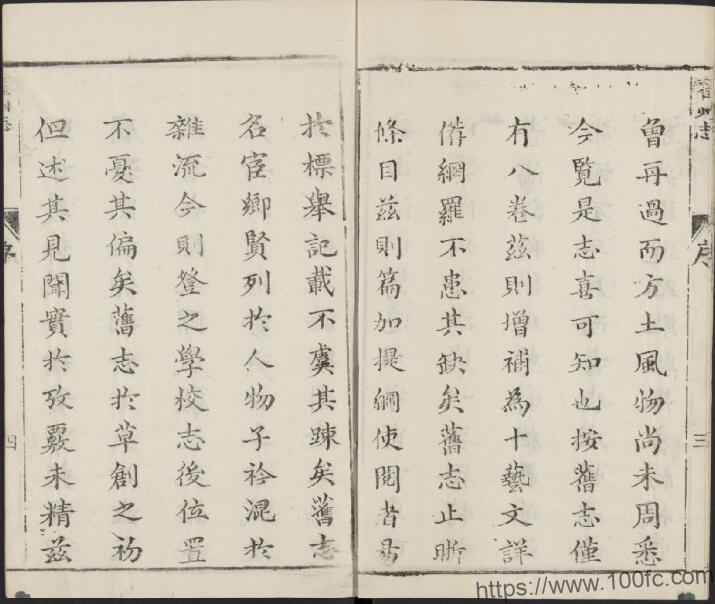 曾再過而方土風物尚未周悉
今覽是志喜可知也按舊志僅
有八卷茲則增補為十藝文詳
備網羅不患其缺矣舊志止晰
條目茲則篇加提綱使閱者易
於標舉記載不虞其踈矣舊志
名宦鄉賢列於人物子衿混於
雜流今則登之學校志後位置
不憂其偏矣舊志於草創之初
但述其見聞實於攷覈未精茲
州志
序
三
序
四
https://www.100fc.com